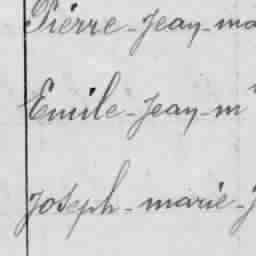 Pierre-Jean-ma
Emile-Jean-m
Joseph-marie-J